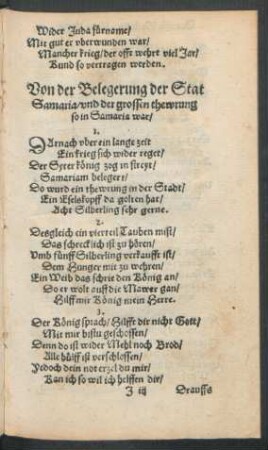 Wider Juda fürname/
Mit gut er vberwunden war/
Mancher krieg/ der offt wehrt viel Jar/
Kund so vertragen werden.
Von der Belegerung der Stat
Samaria/ vnd der grossen thewrung
so in Samaria war/
1.
DArnach vber ein lange zeit
Ein krieg sich wider reget/
Der Syrer könig zog in streyt/
Samariam belegert/
Do wurd ein thewrung in der Stadt/
Ein Eselskopff da golten hat/
Acht Silberling sehr gerne.
2.
Desgleich ein vierteil Tauben mist/
Das schrecklich ist zu hören/
Vmb fünff Silberling verkaufft ist/
Dem Hunger mit zu wehren/
Ein Weib das schrie den König an/
Do er wolt auff die Mawer gan/
Hilff mir König mein Herre.
3.
Der König sprach/ Hilfft dir nicht Gott/
Mit mir bistu geschossen/
Denn do ist wider Mehl noch Brod/
Alle hülff ist verschlossen/
Jedoch dein not erzel du mir/
Kan ich so wil ich helffen dir/
J iij
Drauss